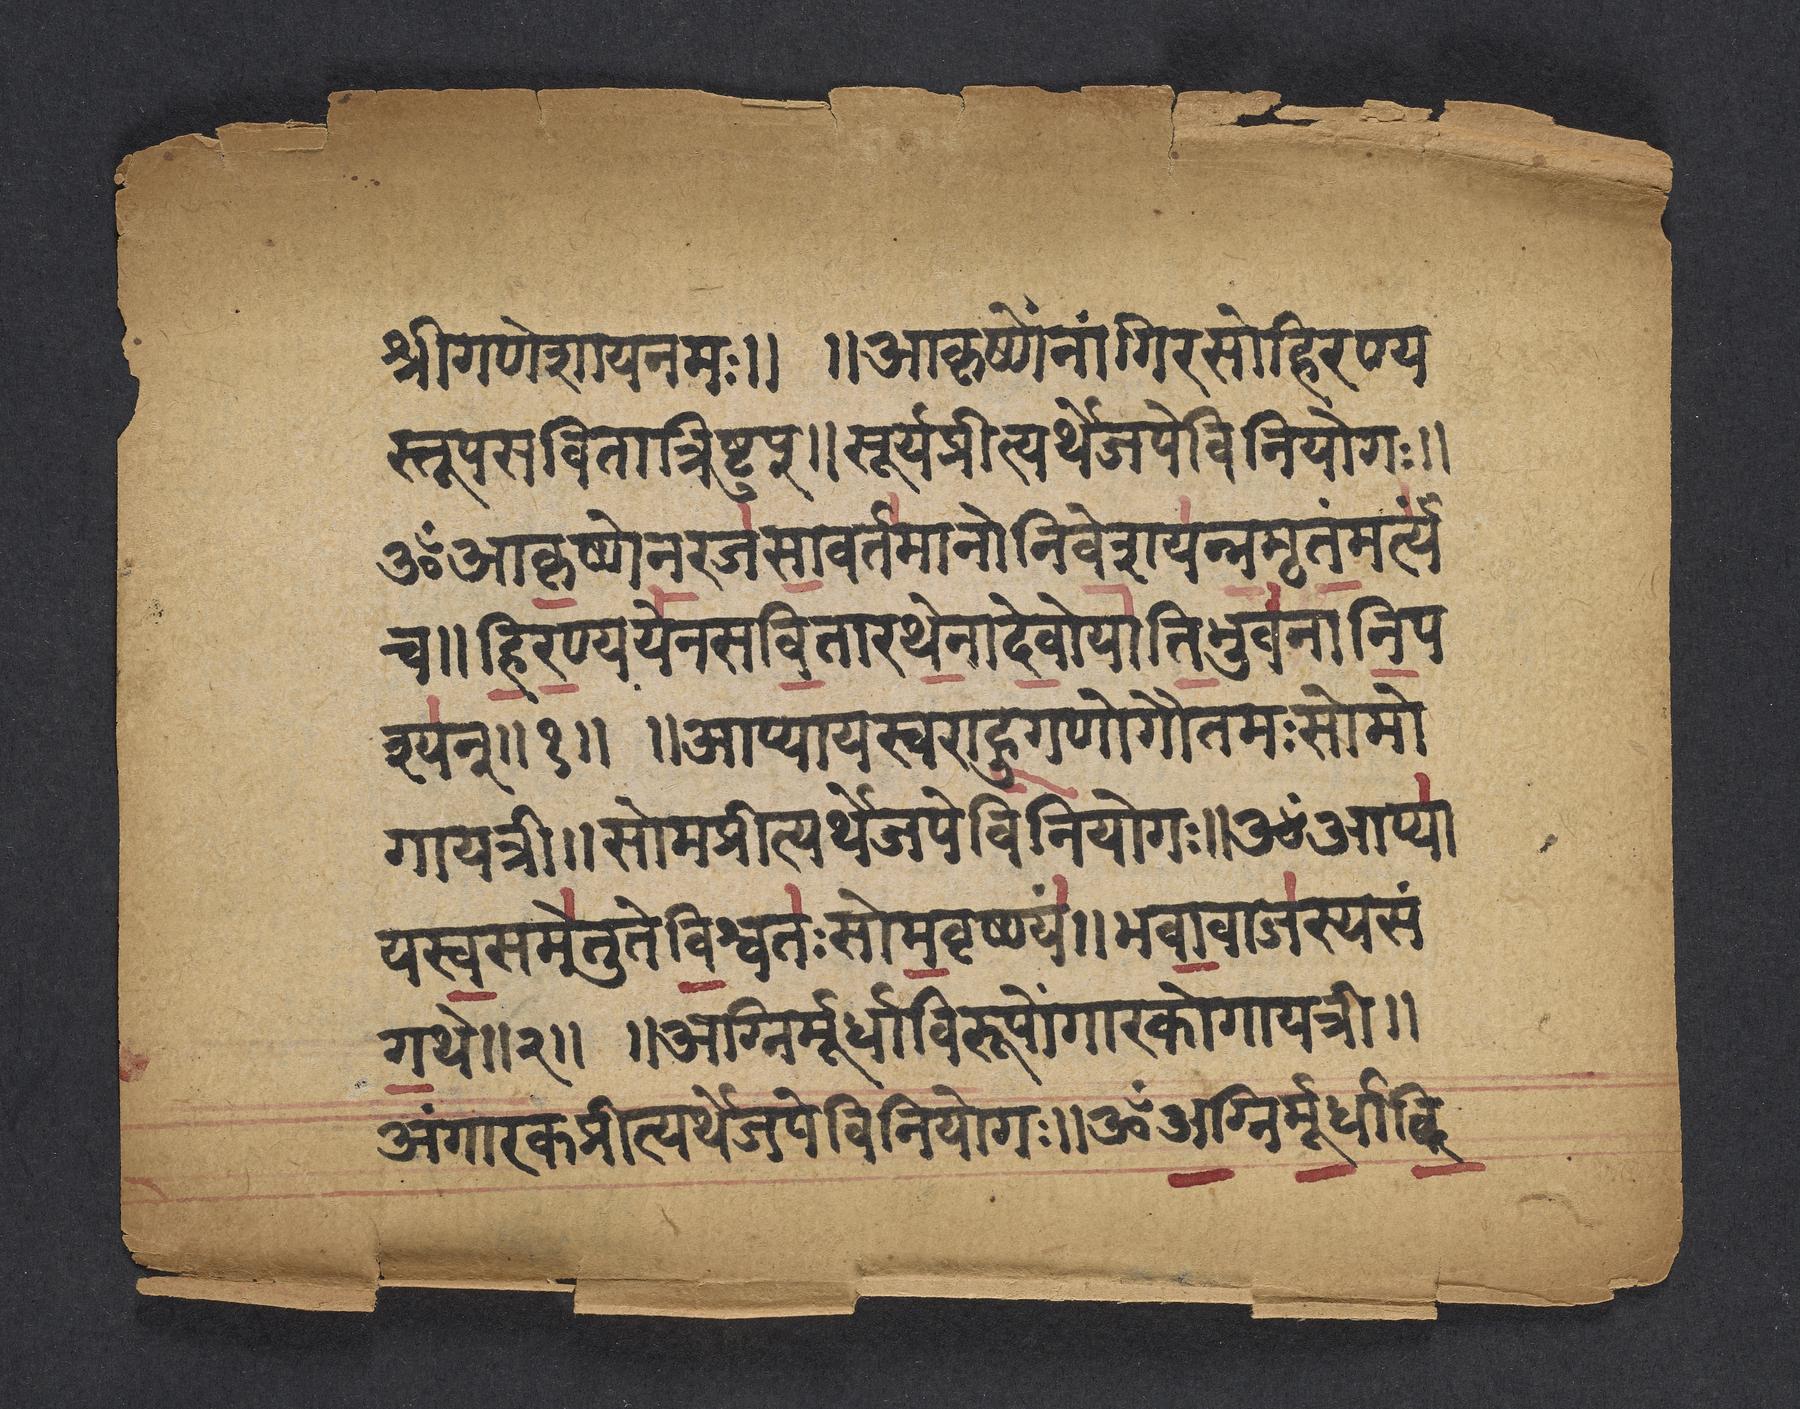 श्रीगणेशायनमः॥ ॥आकृष्णेनांगिरसोहिरण्य
स्तूपसवितात्रिष्टुप्॥सूर्यप्रीत्यर्थेजपेविनियोगः॥
ॐआकृष्णेनरजसावर्तमानोनिवेशयन्नमृतंमर्त्यं
च॥हिरण्ययेनसवितारथेनादेवोयातिभुवनानिप
श्यन्॥१॥ ॥आप्यायस्वराहुगणोगौतमःसोमो
गायत्री॥सोमप्रीत्यर्थेजपेविनियोगः॥ॐआप्या
यस्वसमेतुतेविश्वतःसोमवृष्ण्यं॥भवावाजस्यसं
गथे॥२॥ ॥अग्निर्मूर्धाविरूपोंगारकोगायत्री॥
अंगारकप्रीत्यर्थेजपेविनियोगः॥ॐअग्निर्मूर्धादि